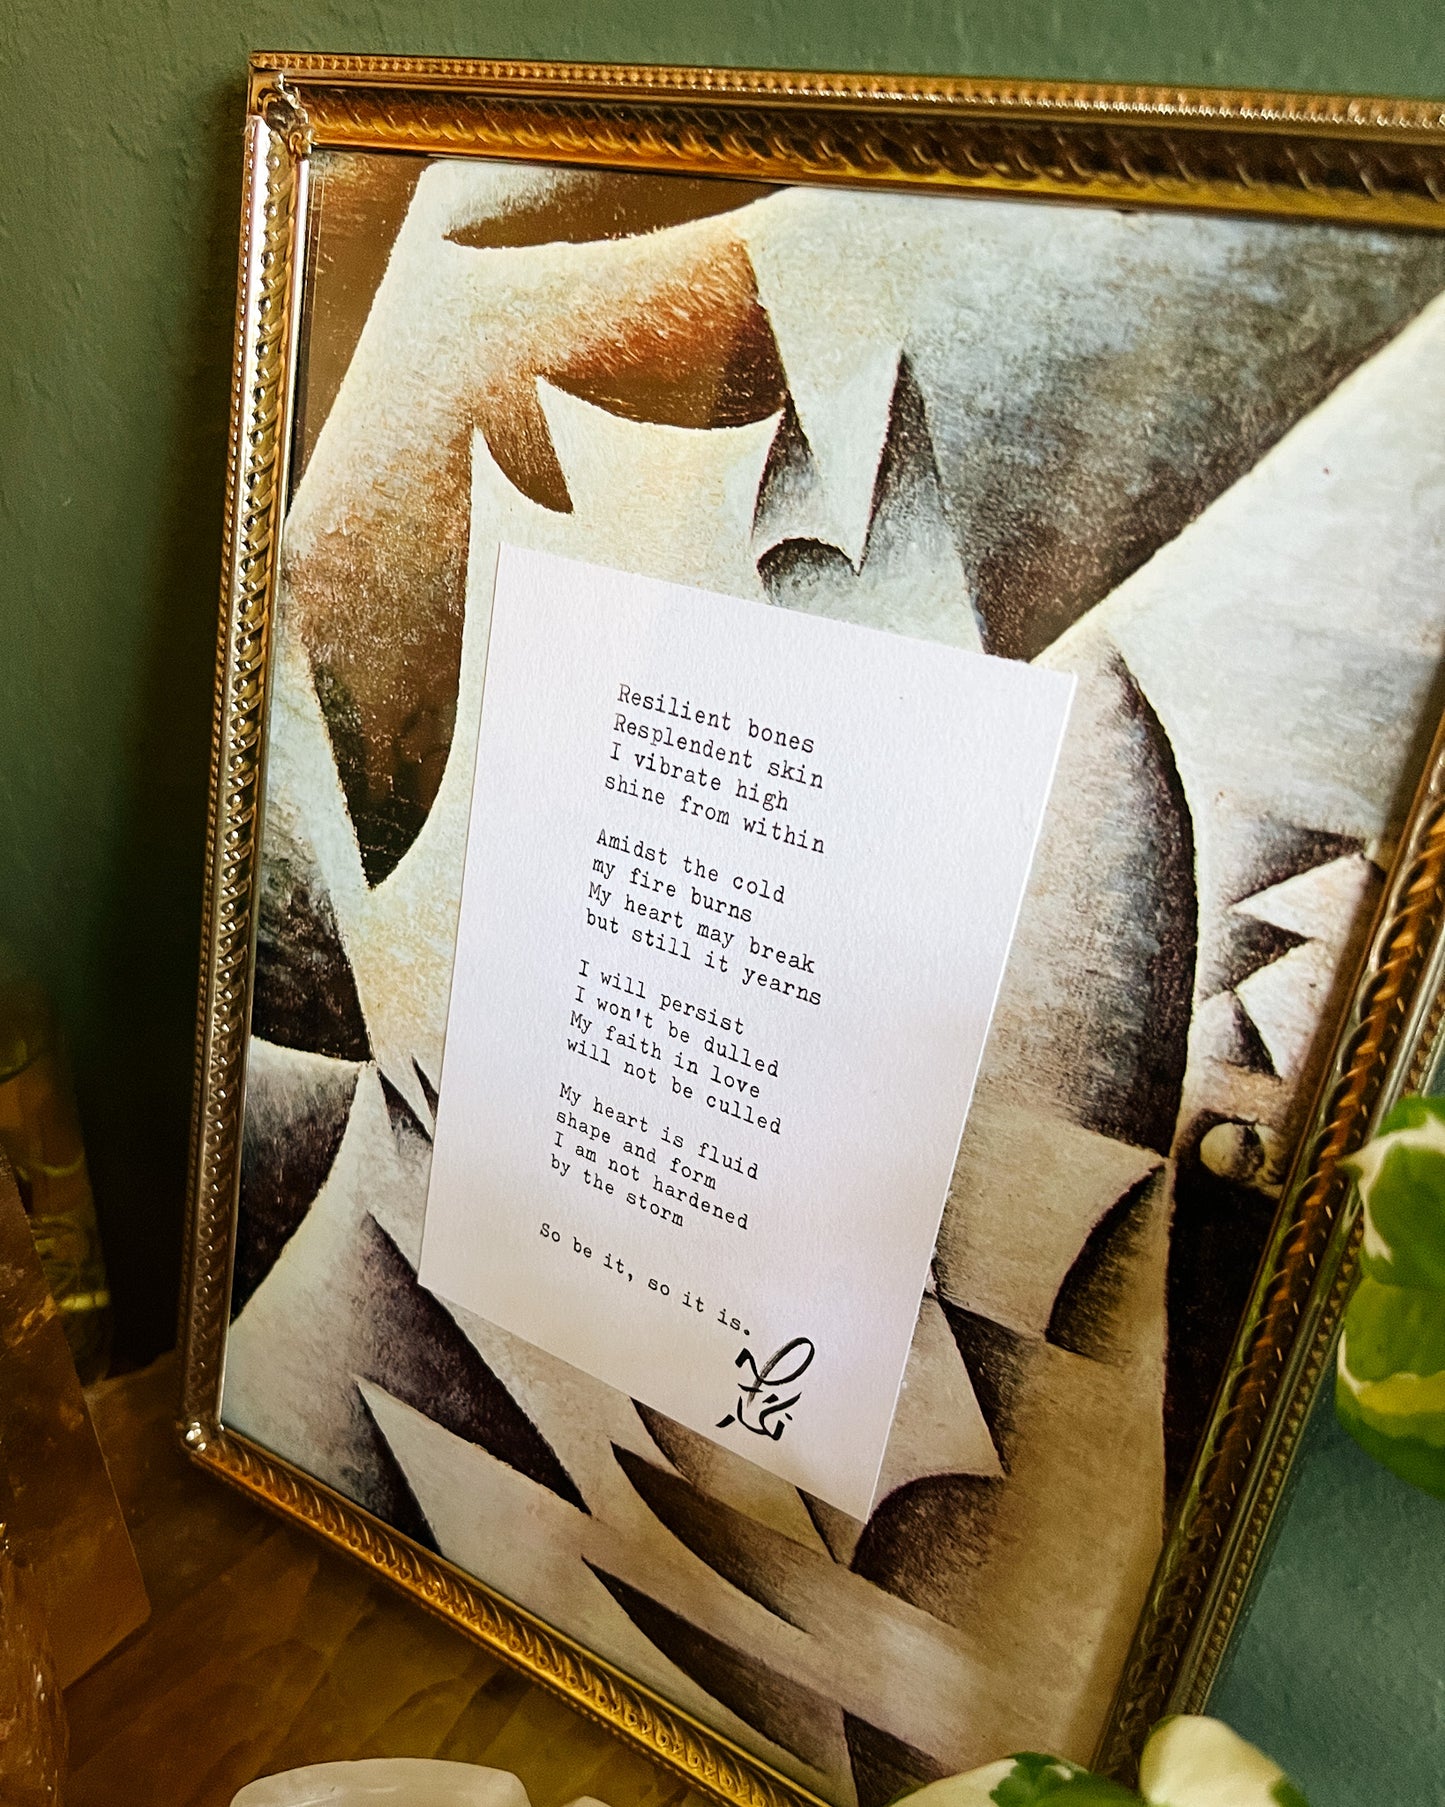 Resilient bones
Resplendent skin
I vibrate high
shine from within
Amidst the cold
my fire burns
My heart may break
but still it yearns
I will persist
I won't be dulled
My faith in love
will not be culled
My heart is fluid
shape and form
I am not hardened
by the storm
So be it, so it is.